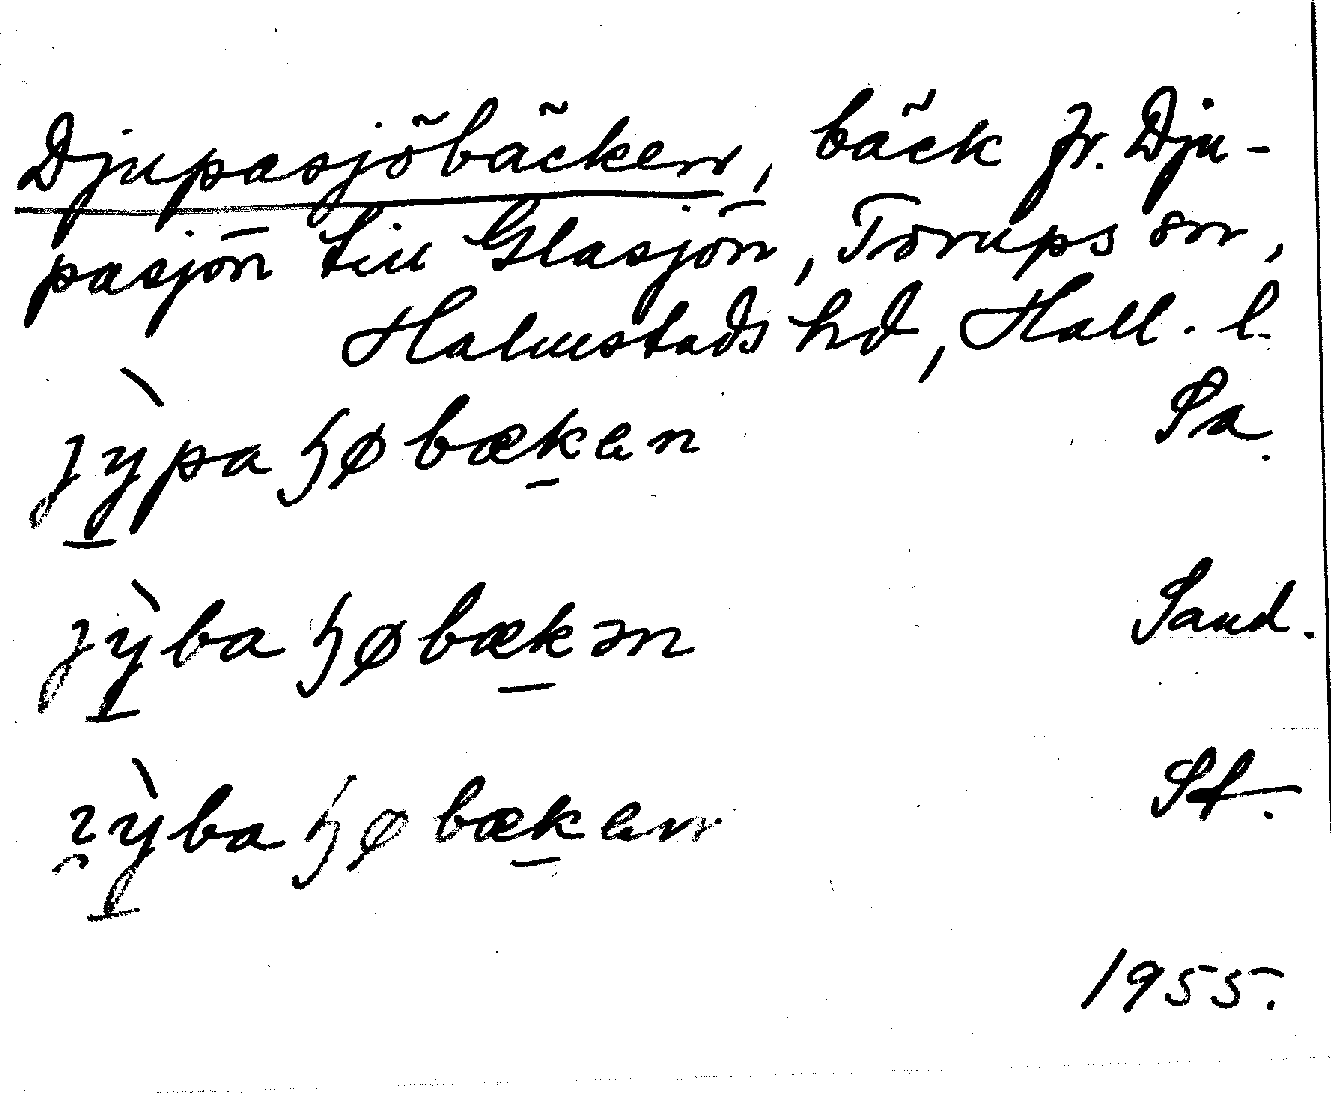 Djupasjöbäcken, bäck fr. Dju-
pasjön till Glasjön, Torups sn,
Halmstads hd, Hall. l.
jỳpaɧøbæken Sa.
jỳbaɧøbækən Sand.
ỳbaɧøbæken St.
1955.